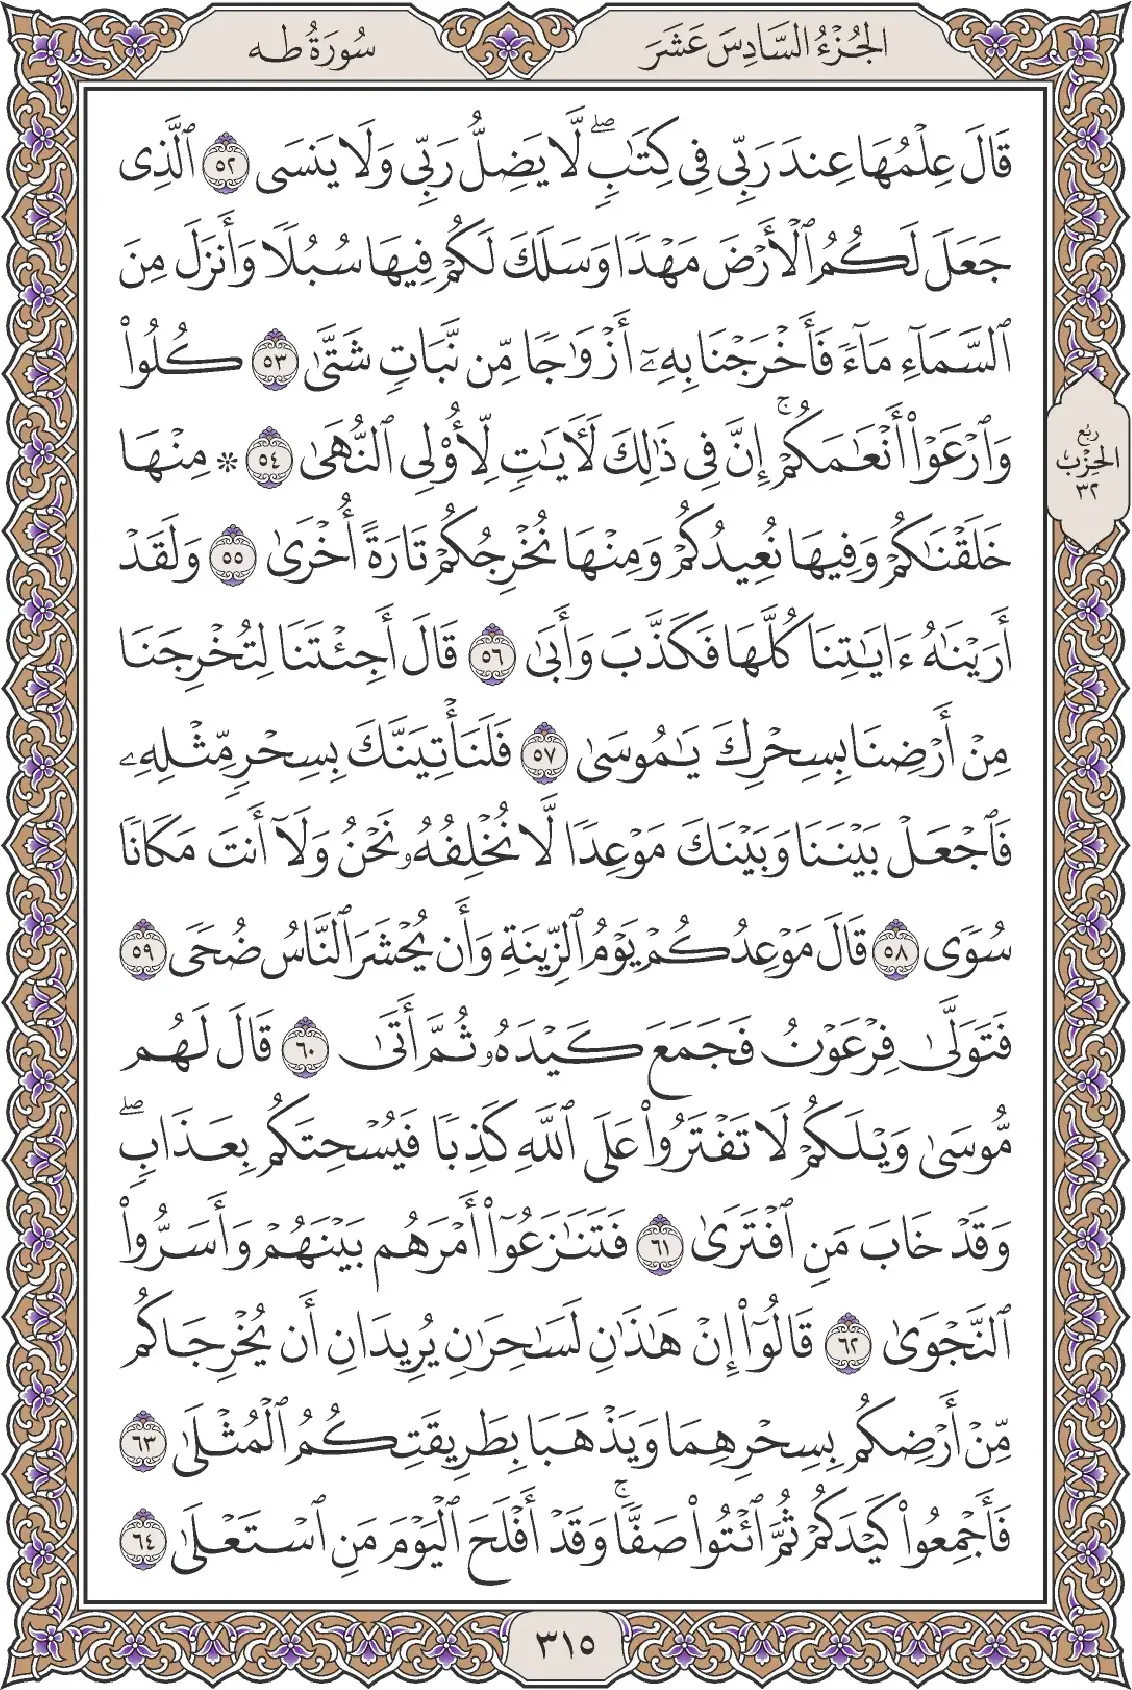 الجُزْءُ السَّادِسَ عَشَرَ
سُورَةُ طه
قَالَ عِلْمُهَا عِندَ رَبِّى فِى كِتَٰبٍۖ لَّا يَضِلُّ رَبِّى وَلَا يَنسَى ٥٢ ٱلَّذِى
جَعَلَ لَكُمُ ٱلْأَرْضَ مَهْدًا وَسَلَكَ لَكُمْ فِيهَا سُبُلًا وَأَنزَلَ مِنَ
ٱلسَّمَآءِ مَآءً فَأَخْرَجْنَا بِهِۦٓ أَزْوَٰجًا مِّن نَّبَاتٍ شَتَّىٰ ٥٣ كُلُوا۟
وَٱرْعَوْا۟ أَنْعَٰمَكُمْۚ إِنَّ فِى ذَٰلِكَ لَءَايَٰتٍ لِّأُو۟لِى ٱلنُّهَىٰ ٥٤ * مِنْهَا
رُبْعُ
الحِزْبِ
٣٢
خَلَقْنَٰكُمْ وَفِيهَا نُعِيدُكُمْ وَمِنْهَا نُخْرِجُكُمْ تَارَةً أُخْرَىٰ ٥٥ وَلَقَدْ
أَرَيْنَٰهُ ءَايَٰتِنَا كُلَّهَا فَكَذَّبَ وَأَبَىٰ ٥٦ قَالَ أَجِئْتَنَا لِتُخْرِجَنَا
مِنْ أَرْضِنَا بِسِحْرِكَ يَٰمُوسَىٰ ٥٧ فَلَنَأْتِيَنَّكَ بِسِحْرٍ مِّثْلِهِۦ
فَٱجْعَلْ بَيْنَنَا وَبَيْنَكَ مَوْعِدًا لَّا نُخْلِفُهُۥ نَحْنُ وَلَآ أَنتَ مَكَانًا
سُوًى ٥٨ قَالَ مَوْعِدُكُمْ يَوْمُ ٱلزِّينَةِ وَأَن يُحْشَرَ ٱلنَّاسُ ضُحًى ٥٩
فَتَوَلَّىٰ فِرْعَوْنُ فَجَمَعَ كَيْدَهُۥ ثُمَّ أَتَىٰ ٦٠ قَالَ لَهُم
مُّوسَىٰ وَيْلَكُمْ لَا تَفْتَرُوا۟ عَلَى ٱللَّهِ كَذِبًا فَيُسْحِتَكُم بِعَذَابٍۖ
وَقَدْ خَابَ مَنِ ٱفْتَرَىٰ ٦١ فَتَنَٰزَعُوٓا۟ أَمْرَهُم بَيْنَهُمْ وَأَسَرُّوا۟
ٱلنَّجْوَىٰ ٦٢ قَالُوٓا۟ إِنْ هَٰذَٰنِ لَسَٰحِرَٰنِ يُرِيدَانِ أَن يُخْرِجَاكُم
مِّنْ أَرْضِكُم بِسِحْرِهِمَا وَيَذْهَبَا بِطَرِيقَتِكُمُ ٱلْمُثْلَىٰ ٦٣
فَأَجْمِعُوا۟ كَيْدَكُمْ ثُمَّ ٱئْتُوا۟ صَفًّاۚ وَقَدْ أَفْلَحَ ٱلْيَوْمَ مَنِ ٱسْتَعْلَىٰ ٦٤
٣١٥